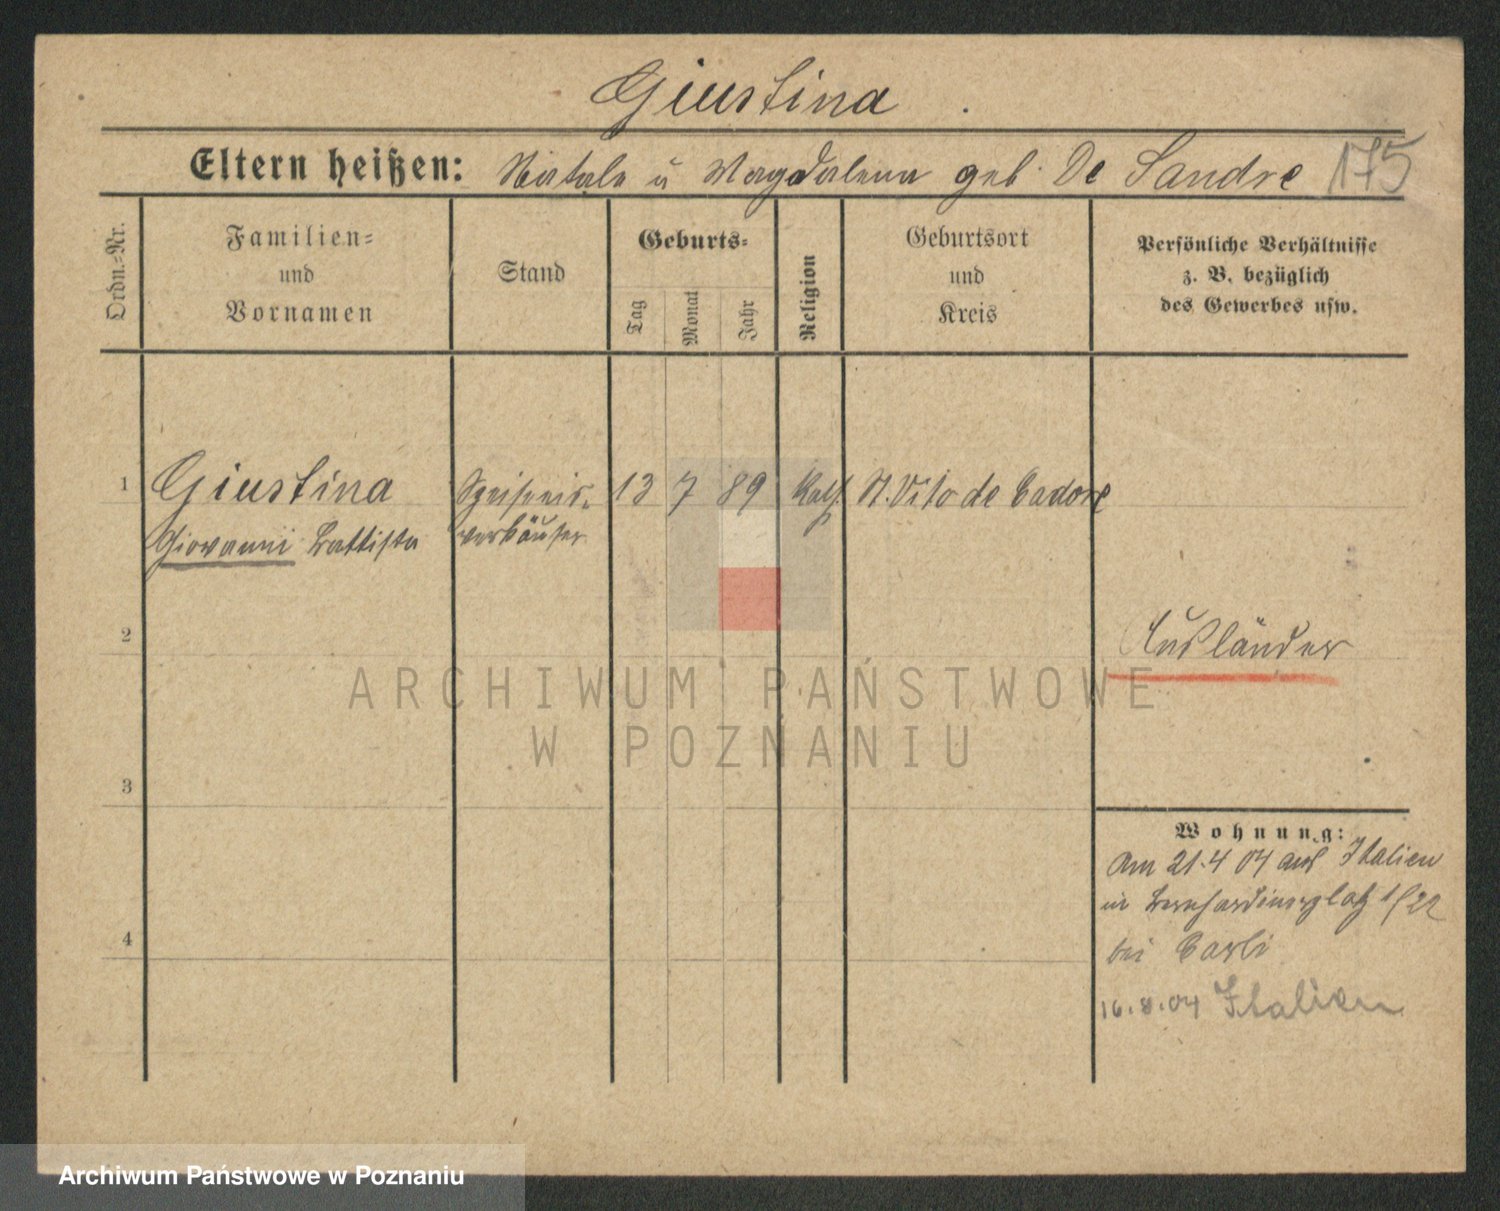 Giustina
Eltern heißen: Natale u Magdalena geb. De Sandre 175
Ordn.=Nr.
Familien=
und
Vornamen
Stand
Geburts=
Tag
Monat
Jahr
Religion
Geburtsort
und
Kreis
Persönliche Verhältnisse
z. B. bezüglich
des Gewerbes usw.
1 Giustina Speiseeis- 13 7 89 Kath. St. Vito de Cadore
Giovanni Battista verkäufer
2
Ausländer
ARCHIWUM PAŃSTWOWE
W POZNANIU
3
Wohnung:
Am 21.4 04 aus Italien
in Bernhardinerplatz 1/22
4
bei Carli
16.8.04 Italien
Archiwum Państwowe w Poznaniu